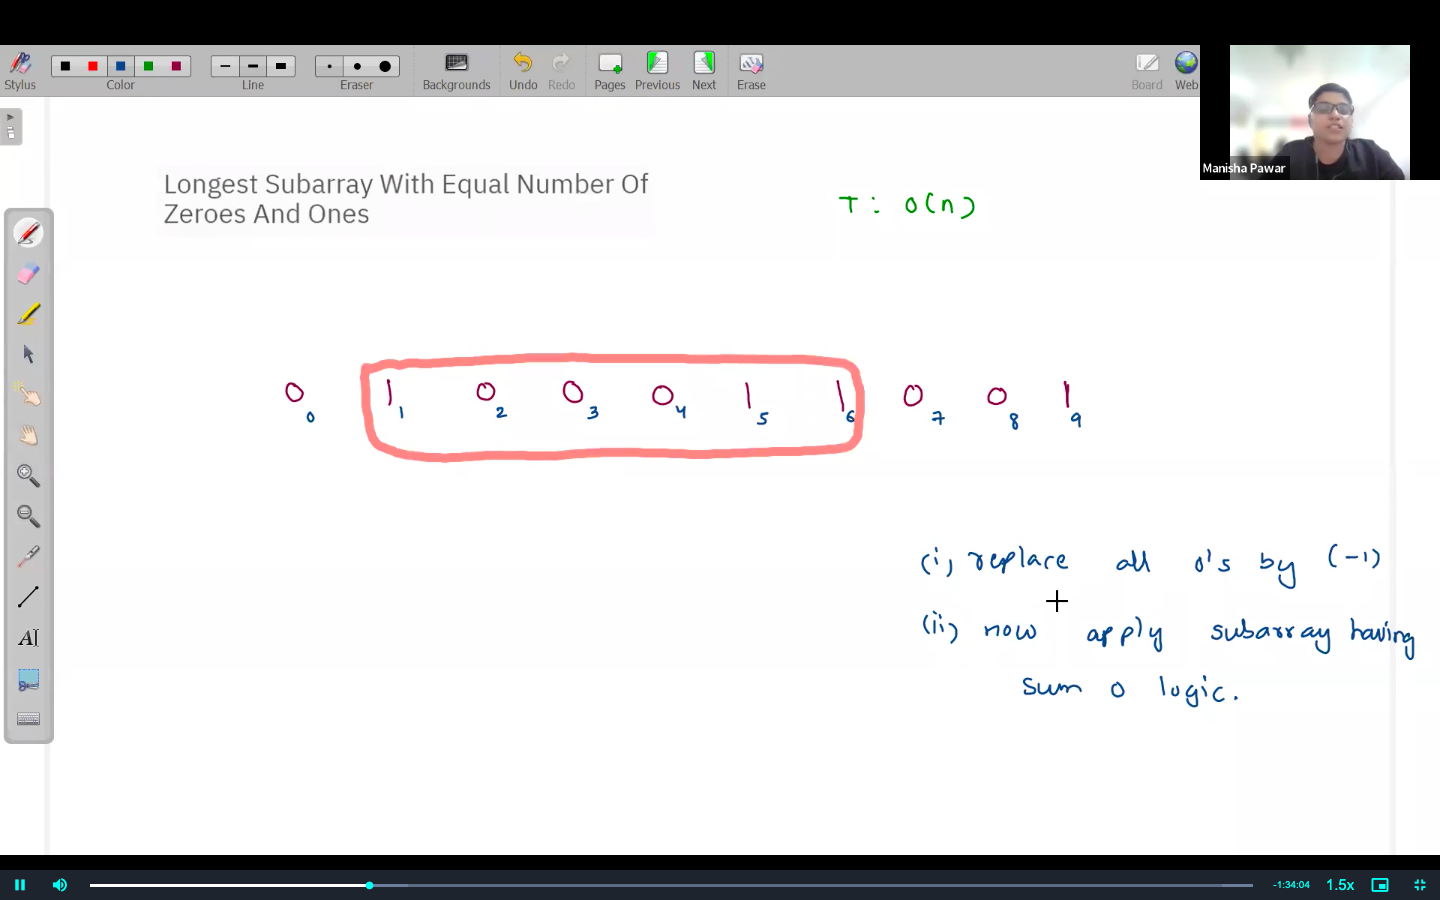 Stylus
Color
Line
Eraser
Backgrounds
Undo
Redo
Pages
Previous
Next
Erase
Board
Web
Manisha Pawar
Longest Subarray With Equal Number Of
Zeroes And Ones
T : O(n)
0 1 0 0 0 1 1 0 0 1
0 1 2 3 4 5 6 7 8 9
(i) replace all 0's by (-1)
(ii) now apply subarray having
sum 0 logic.
AI
-1:34:04
1.5x